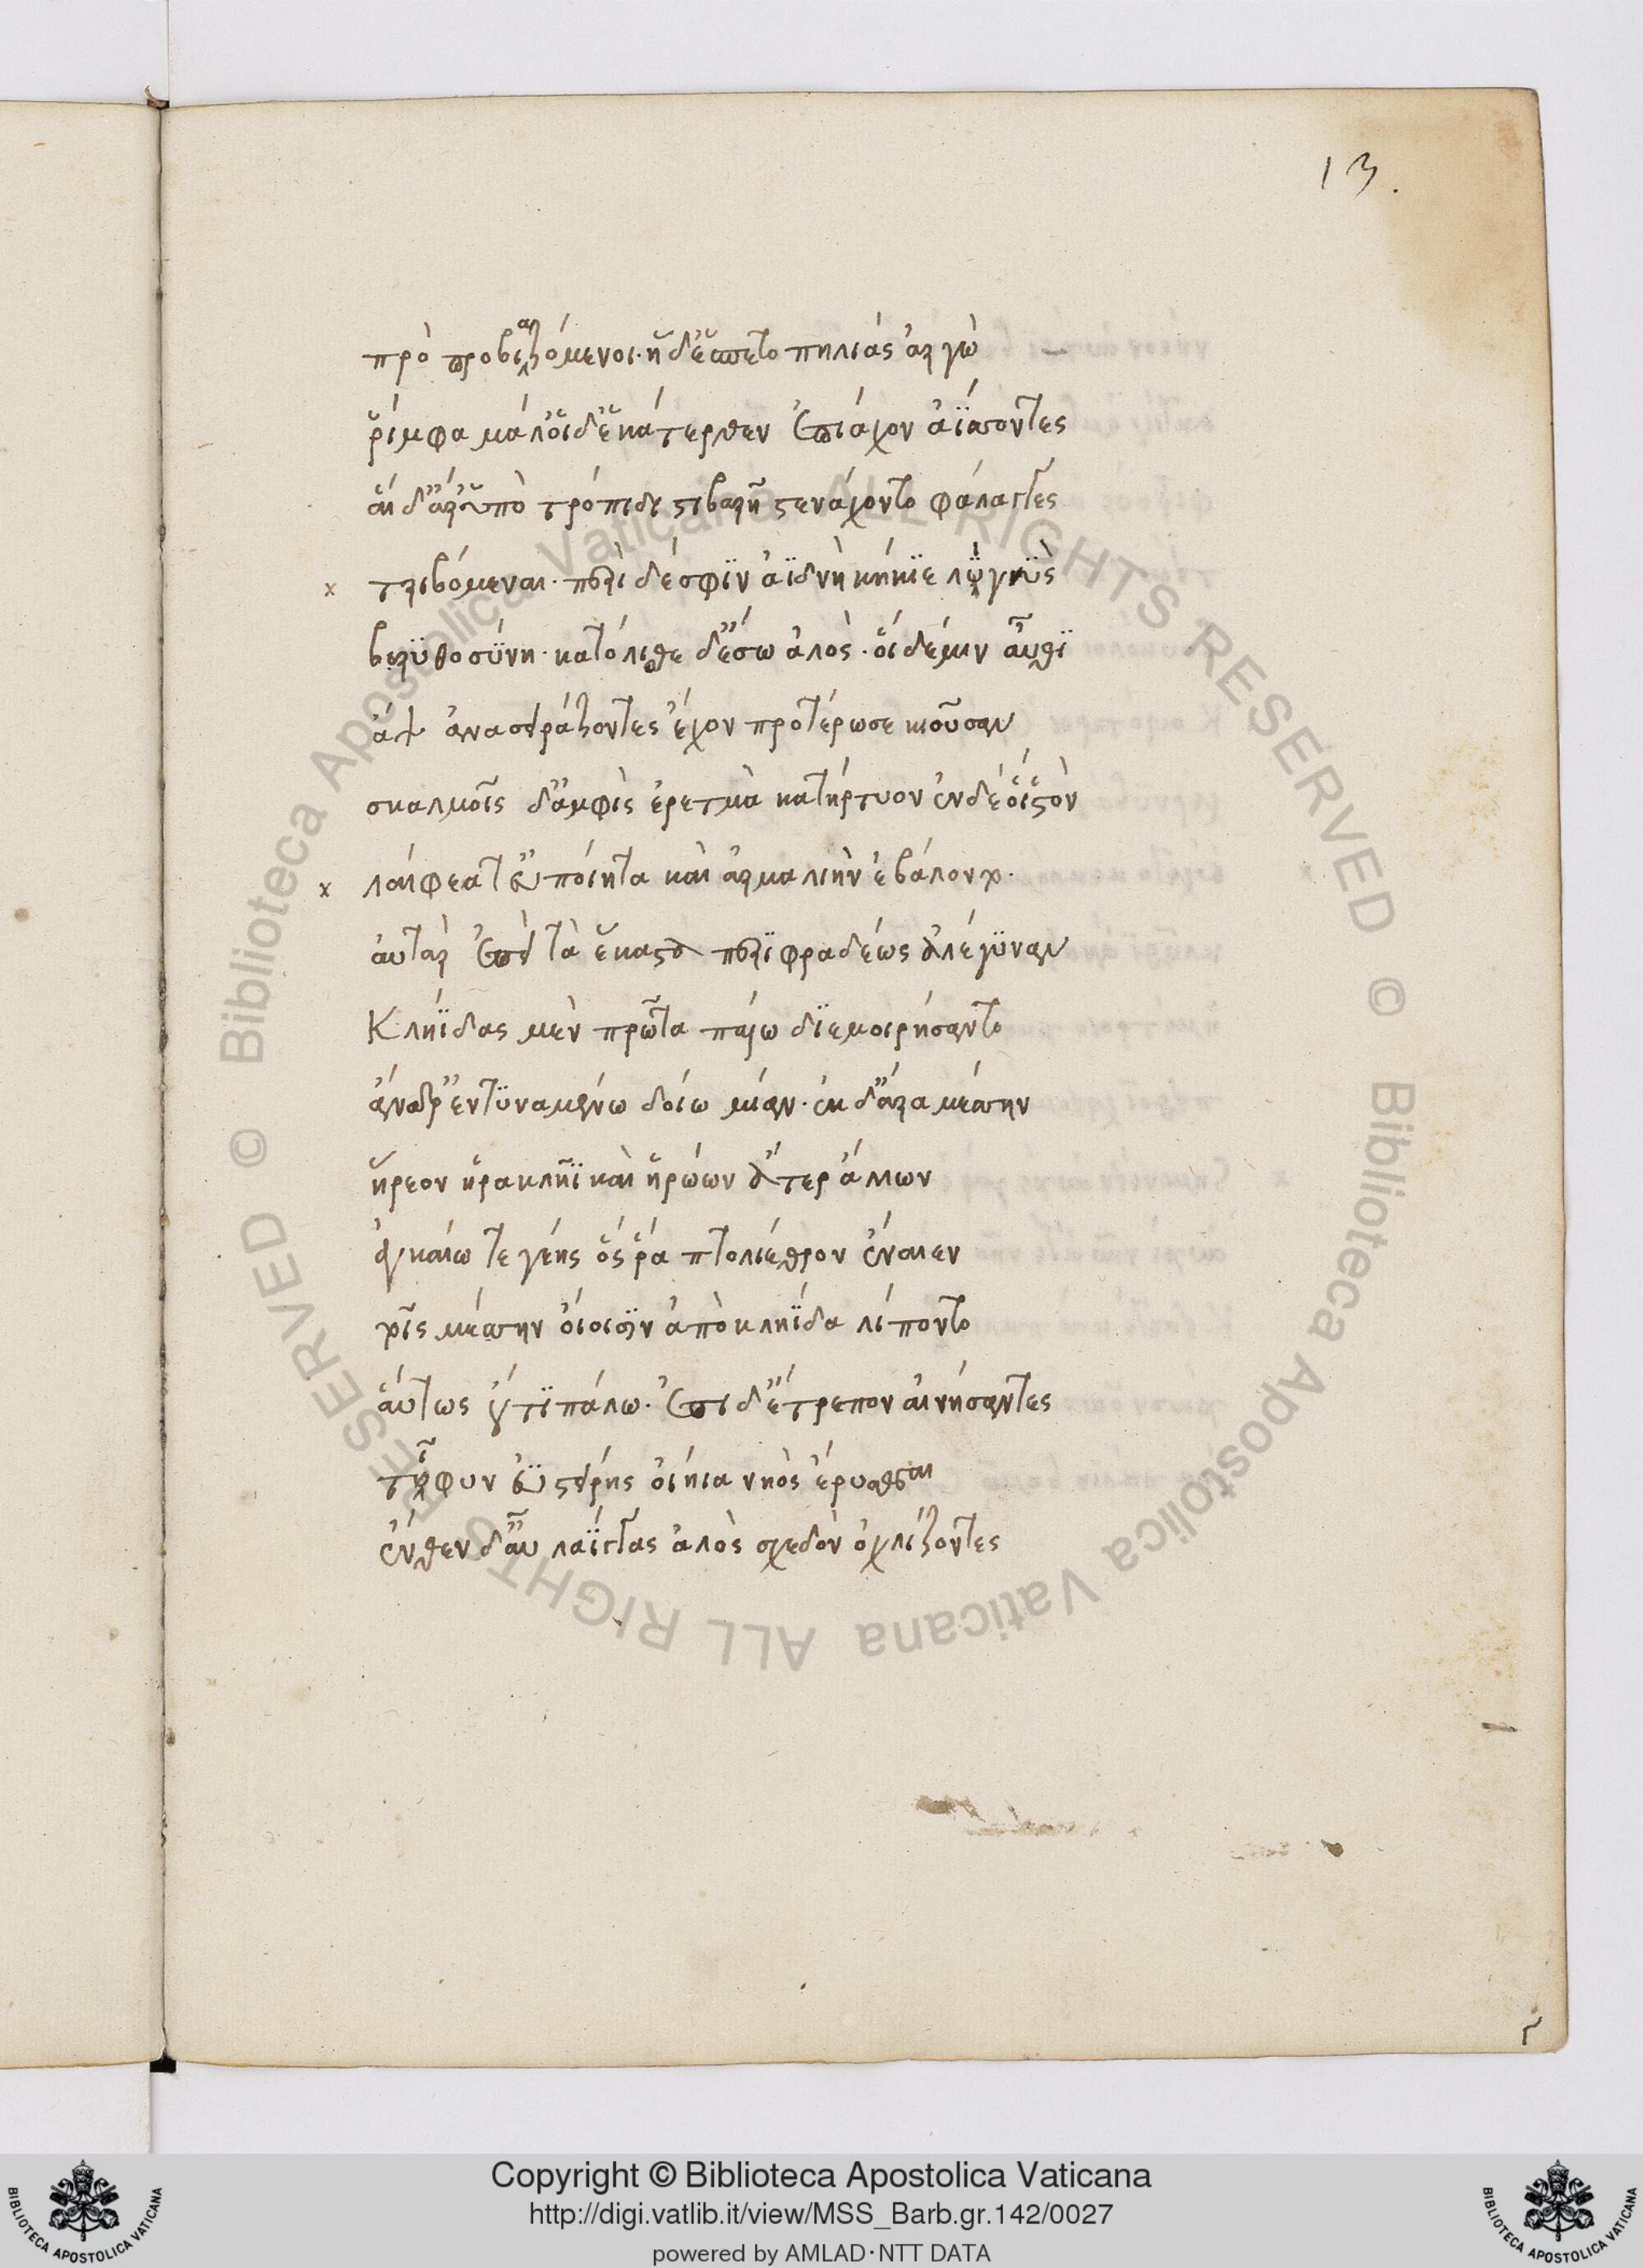 13.
πρὸ προβιαζόμενοι· ἡ δ' ἕσπετο πηλιὰς ἀργὼ
ῥίμφα μάλ' οἱ δ' ἑκάτερθεν ἐπίαχον ἀΐσσοντες
αἱ δ' ἄρ' ὑπὸ τρόπιδι στιβαρῇ στενάχοντο φάλαγγες
x τριβόμεναι· περὶ δέ σφϊν ἀϊδνὴ κήκιε λιγνὺς
βριθοσύνῃ· κατόλισθε δ' ἔσω ἁλὸς· οἱ δέ μιν αὖθϊ
ἂψ ἀνασειράζοντες ἔχον προτέρωσε κιοῦσαν
σκαλμοῖς δ' ἀμφὶς ἐρετμὰ κατήρτυον ἐν δέ οἱ ἱστὸν
x λαίφεα τ' εὐποίητα καὶ ἁρμαλιὴν ἐβάλοντο·
αὐτὰρ ἐπεὶ τὰ ἕκαστα περϊφραδέως ἀλέγϋναν
Κληῗδας μὲν πρῶτα πάλῳ δϊεμοιρήσαντο
ἄνδρ' ἐντϋναμένω δοίω μίαν· ἐκ δ' ἄρα μέσσην
ᾕρεον ἡρακλῆϊ καὶ ἡρώων ἄτερ ἄλλων
ἀγκαίῳ τεγέης ὅς ῥα πτολίεθρον ἔναιεν
τοῖς μέσσην οἴοισιν ἀπὸ κληΐδα λίποντο
αὔτως οὔτϊ πάλῳ· ἐπὶ δ' ἔτρεπον αἰνήσαντες
τῖφυν ἐϋστείρης οἰήϊα νηὸς ἔρυσθαι
ἔνθεν δ' αὖ λάϊγγας ἁλὸς σχεδὸν ὀχλίζοντες
BIBLIOTECA APOSTOLICA VATICANA
Copyright © Biblioteca Apostolica Vaticana
http://digi.vatlib.it/view/MSS_Barb.gr.142/0027
powered by AMLAD·NTT DATA
BIBLIOTECA APOSTOLICA VATICANA
© Biblioteca Apostolica Vaticana ALL RIGHTS RESERVED © Biblioteca Apostolica Vaticana ALL RIGHTS RESERVED